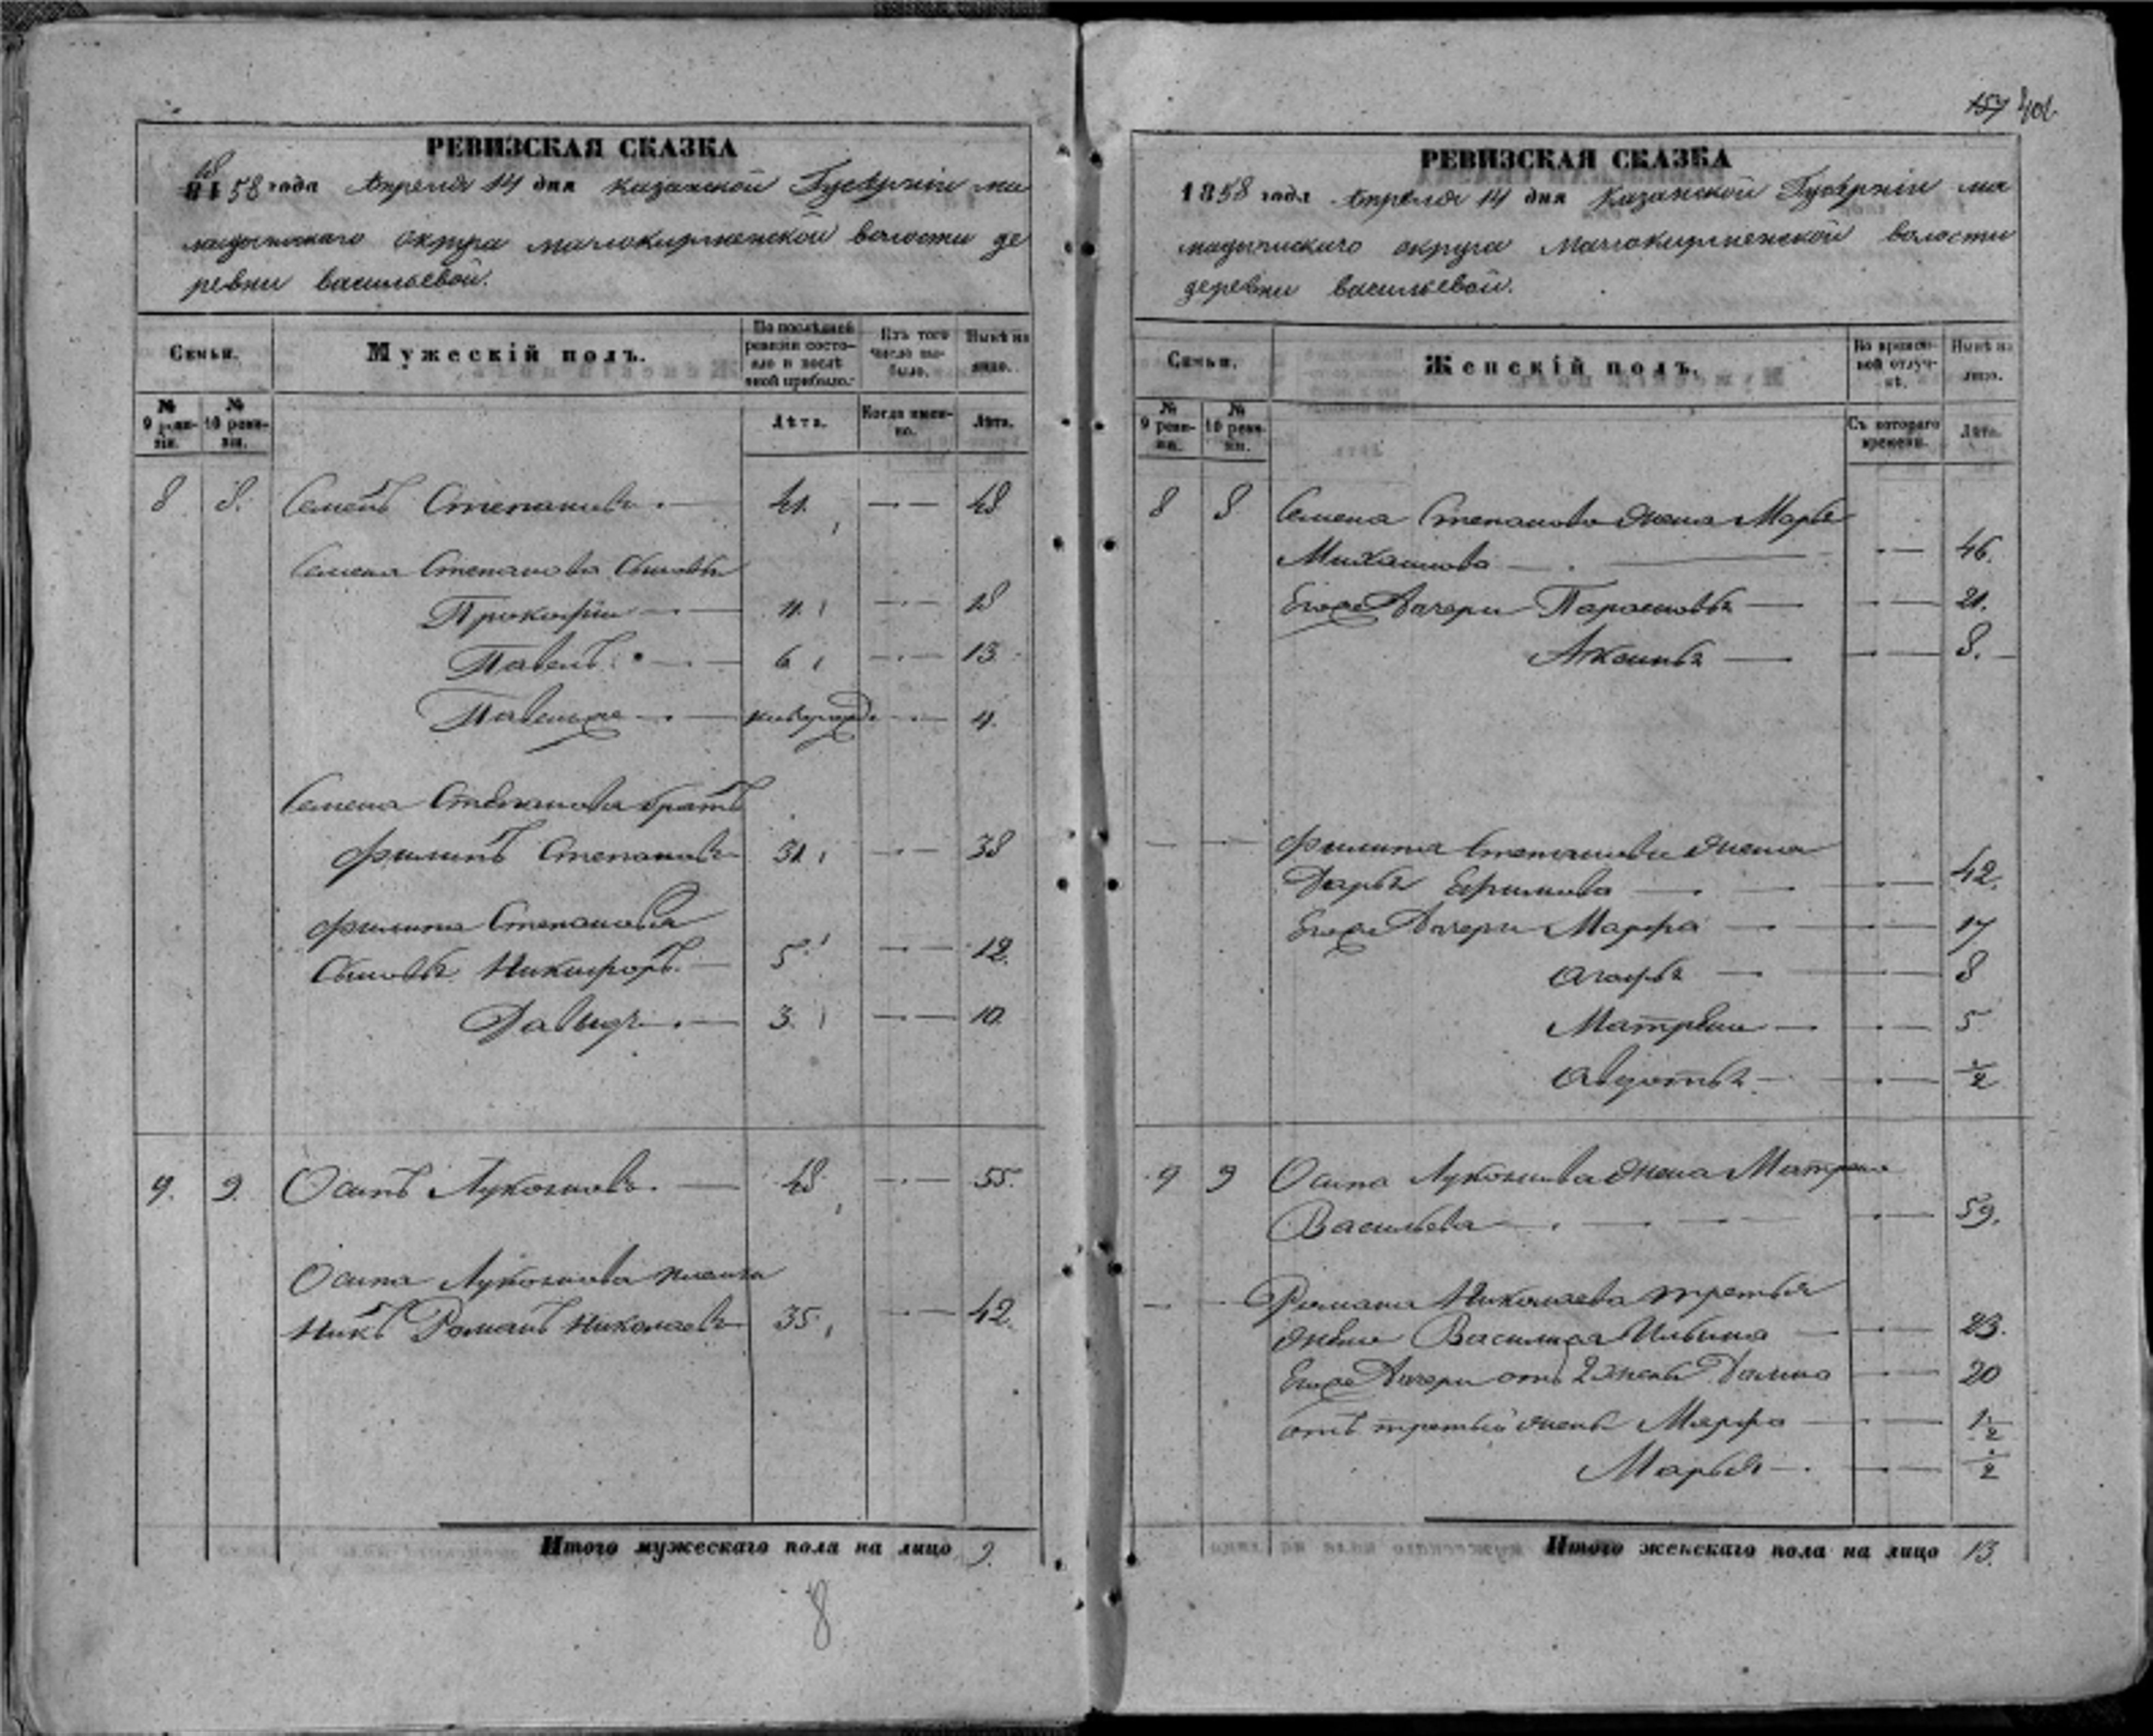 РЕВИЗСКАЯ СКАЗКА
1858 года Апреля 14 дня Казанской Губернiи ма
мадышскаго округа малокирменской волости де
ревни васильевой.
Семьи.
Мужескiй полъ.
По последней ревизiи состояло и после оной прибыло.
Изъ того числа выбыло.
Ныне на лицо.
№ 9 ревизiи.
№ 10 ревизiи.
Лѣта.
Когда именно.
Лѣта.
8 8. Семенъ Степановъ 41. 48
Семена Степанова Сыновья
Прокофiй 11. 18
Павелъ 6 13.
Павелъ же новорожд. 4.
Семена Степанова братъ
Филипъ Степановъ 31. 38
Филипа Степанова
Сыновья Никифоръ 5. 12.
Давыдъ 3. 10.
9. 9. Осипъ Лукояновъ 48 55.
Осипа Лукоянова племян
никъ Романъ Николаевъ 35. 42.
Итого мужескаго пола на лицо 9.
8
157 402
РЕВИЗСКАЯ СКАЗКА
1858 года Апреля 14 дня Казанской Губернiи ма
мадышскаго округа Малокирменской волости
деревни васильевой.
Семьи.
Женскiй полъ.
Во временной отлучкѣ.
Ныне на лицо.
№ 9 ревизiи.
№ 10 ревизiи.
Съ котораго времени.
Лѣта.
8 8 Семена Степанова жена Марья
Михайлова 46.
Егоже Дочери Парасковья 21.
Аксинья 8.
Филипа Степанова жена
Дарья Ефимова 42.
Егоже Дочери Марфа 17
Агафья 8
Матрена 5
Авдотья ½
9 9 Осипа Лукоянова жена Матрена
Васильева 59.
Романа Николаева третья
жена Василиса Ильина 23.
Егоже Дочери отъ 2 жены 20
отъ третьей жены Марфа 1½
Марья ½
Итого женскаго пола на лицо 13.